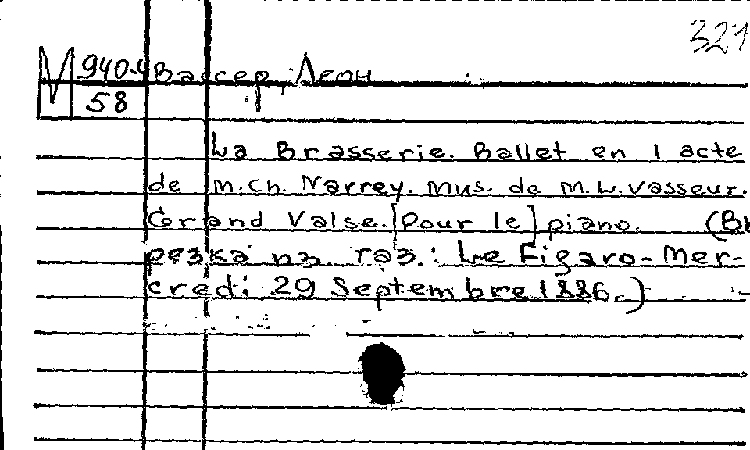 321
М 940-4 Вассер, Леон
58
La Brasserie. Ballet en 1 acte
de M.Ch. Narrey. Mus. de M.L.Vasseur.
Grand Valse. [Pour le] piano. (Вы
резка из газ.: Le Figaro-Mer-
credi 29 Septembre 1886.)